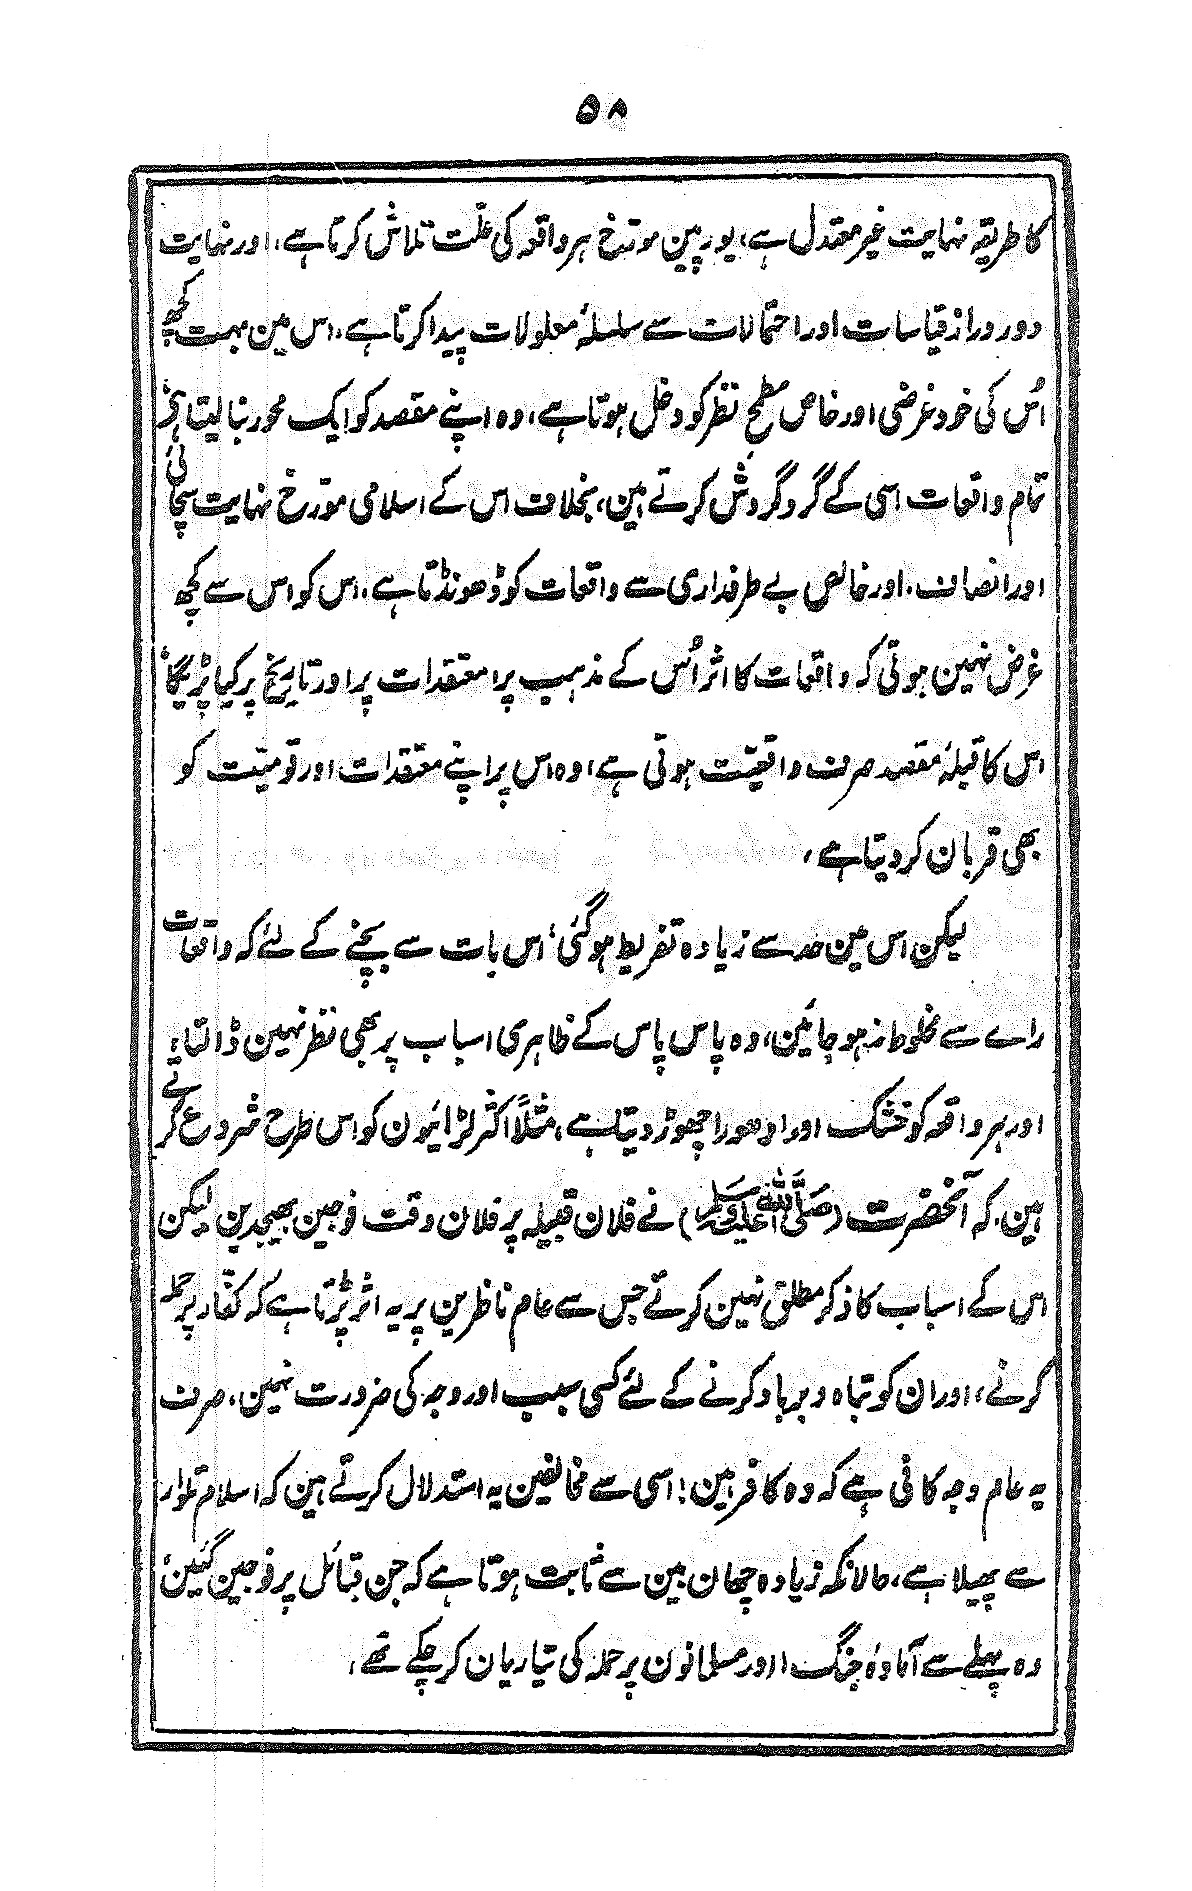 ۵۸
کا طریقہ نہایت غیر معتدل ہے، یورپین مؤرخ ہر واقعہ کی علّت تلاش کرتا ہے، اور نہایت
دور دراز قیاسات اور احتمالات سے سلسلۂ معلولات پیدا کرتا ہے، اس مین بہت کچھ
اُس کی خود غرضی اور خاص مطمح نظر کو دخل ہوتا ہے، وہ اپنے مقصد کو ایک محور بنا لیتا ہی،
تمام واقعات اسی کے گرد گردش کرتے ہین، بخلاف اس کے اسلامی مؤرخ نہایت سچائی
اور انصاف، اور خالص بے طرفداری سے واقعات کو ڈھونڈتا ہے، اس کو اس سے کچھ
غرض نہین ہوتی کہ واقعات کا اثر اُس کے مذہب پر، معتقدات پر اور تاریخ پر کیا پڑیگا،
اس کا قبلۂ مقصد صرف واقعیّت ہوتی ہے، وہ اس پر اپنے معتقدات اور قومیّت کو
بھی قربان کر دیتا ہے،
لیکن اس مین حد سے زیادہ تفریط ہوگئی، اس بات سے بچنے کے لئے کہ واقعات
راے سے مخلوط نہ ہو جائین، وہ پاس پاس کے ظاہری اسباب پر بھی نظر نہین ڈالتا،
اور ہر واقعہ کو خشک اور ادھورا چھوڑ دیتا ہے، مثلاً اکثر لڑائیون کو اس طرح شروع کرتے
ہین، کہ آنحضرت (صلی اللہ علیہ وسلم) نے فلان قبیلہ پر فلان وقت فوجین بھیجدین لیکن
اس کے اسباب کا ذکر مطلق نہین کرتے جس سے عام ناظرین پر یہ اثر پڑتا ہے کہ کفّار پر حملہ
کرنے، اور ان کو تباہ و برباد کرنے کے لئے کسی سبب اور وجہ کی ضرورت نہین، صرف
یہ عام وجہ کافی ہے کہ وہ کافر ہین، اسی سے مخالفین یہ استدلال کرتے ہین کہ اسلام تلوار
سے پھیلا ہے، حالانکہ زیادہ چھان بین سے ثابت ہوتا ہے کہ جن قبائل پر فوجین گئین،
وہ پہلے سے آمادۂ جنگ اور مسلمانون پر حملہ کی تیاریان کر چکے تھے،